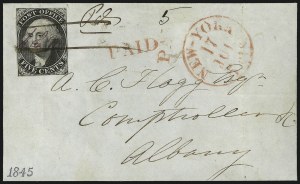 POST OFFICE
FIVE CENTS
5
PAID
NEW-YORK
17
A. C. Flagg Esqr
Comptroller
Albany
1845